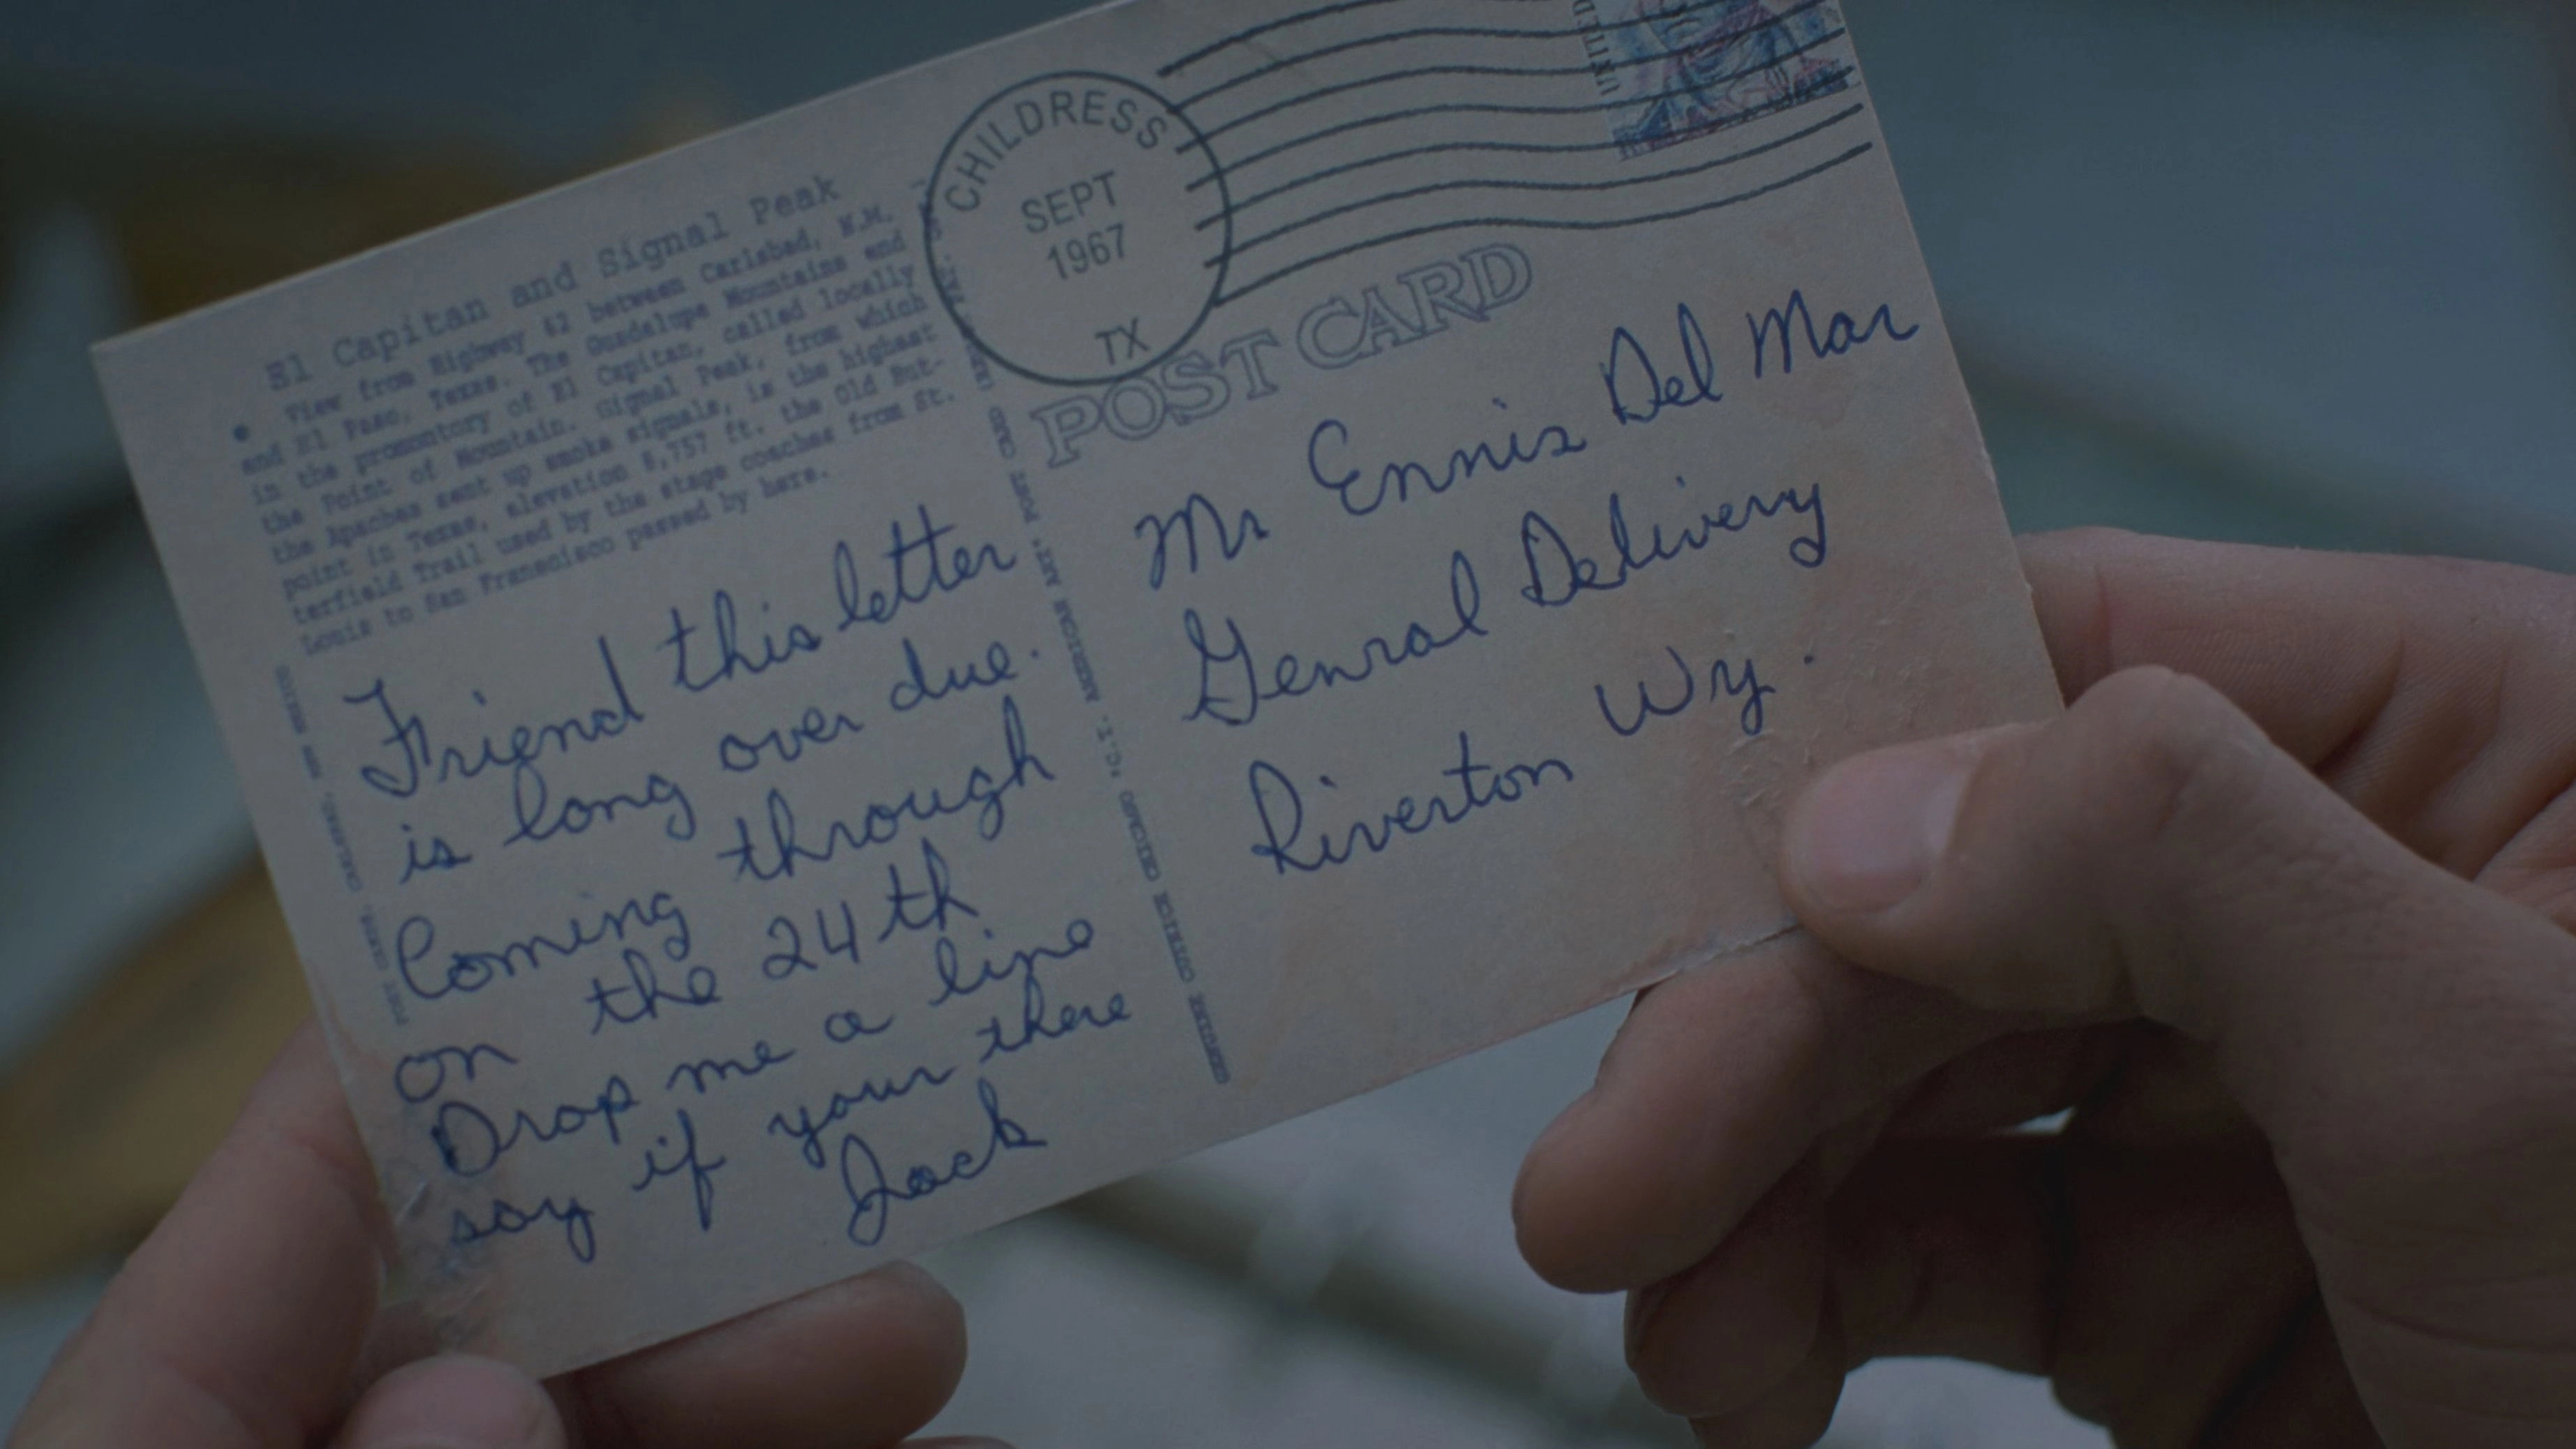 El Capitan and Signal Peak
View from Highway 62 between Carlsbad, N.M.
and El Paso, Texas. The Guadelupe Mountains end
in the promontory of El Capitan, called locally
the Point of Mountain. Signal Peak, from which
the Apaches sent up smoke signals, is the highest
point in Texas, elevation 8,757 ft. the Old But-
terfield Trail used by the stage coaches from St.
Louis to San Franscisco passed by here.
Friend this letter
is long over due.
Coming through
on the 24th
Drop me a line
say if your there
Jack
CHILDRESS
SEPT
1967
TX
UNITED
POST CARD
Mr Ennis Del Mar
Genral Delivery
Riverton Wy.